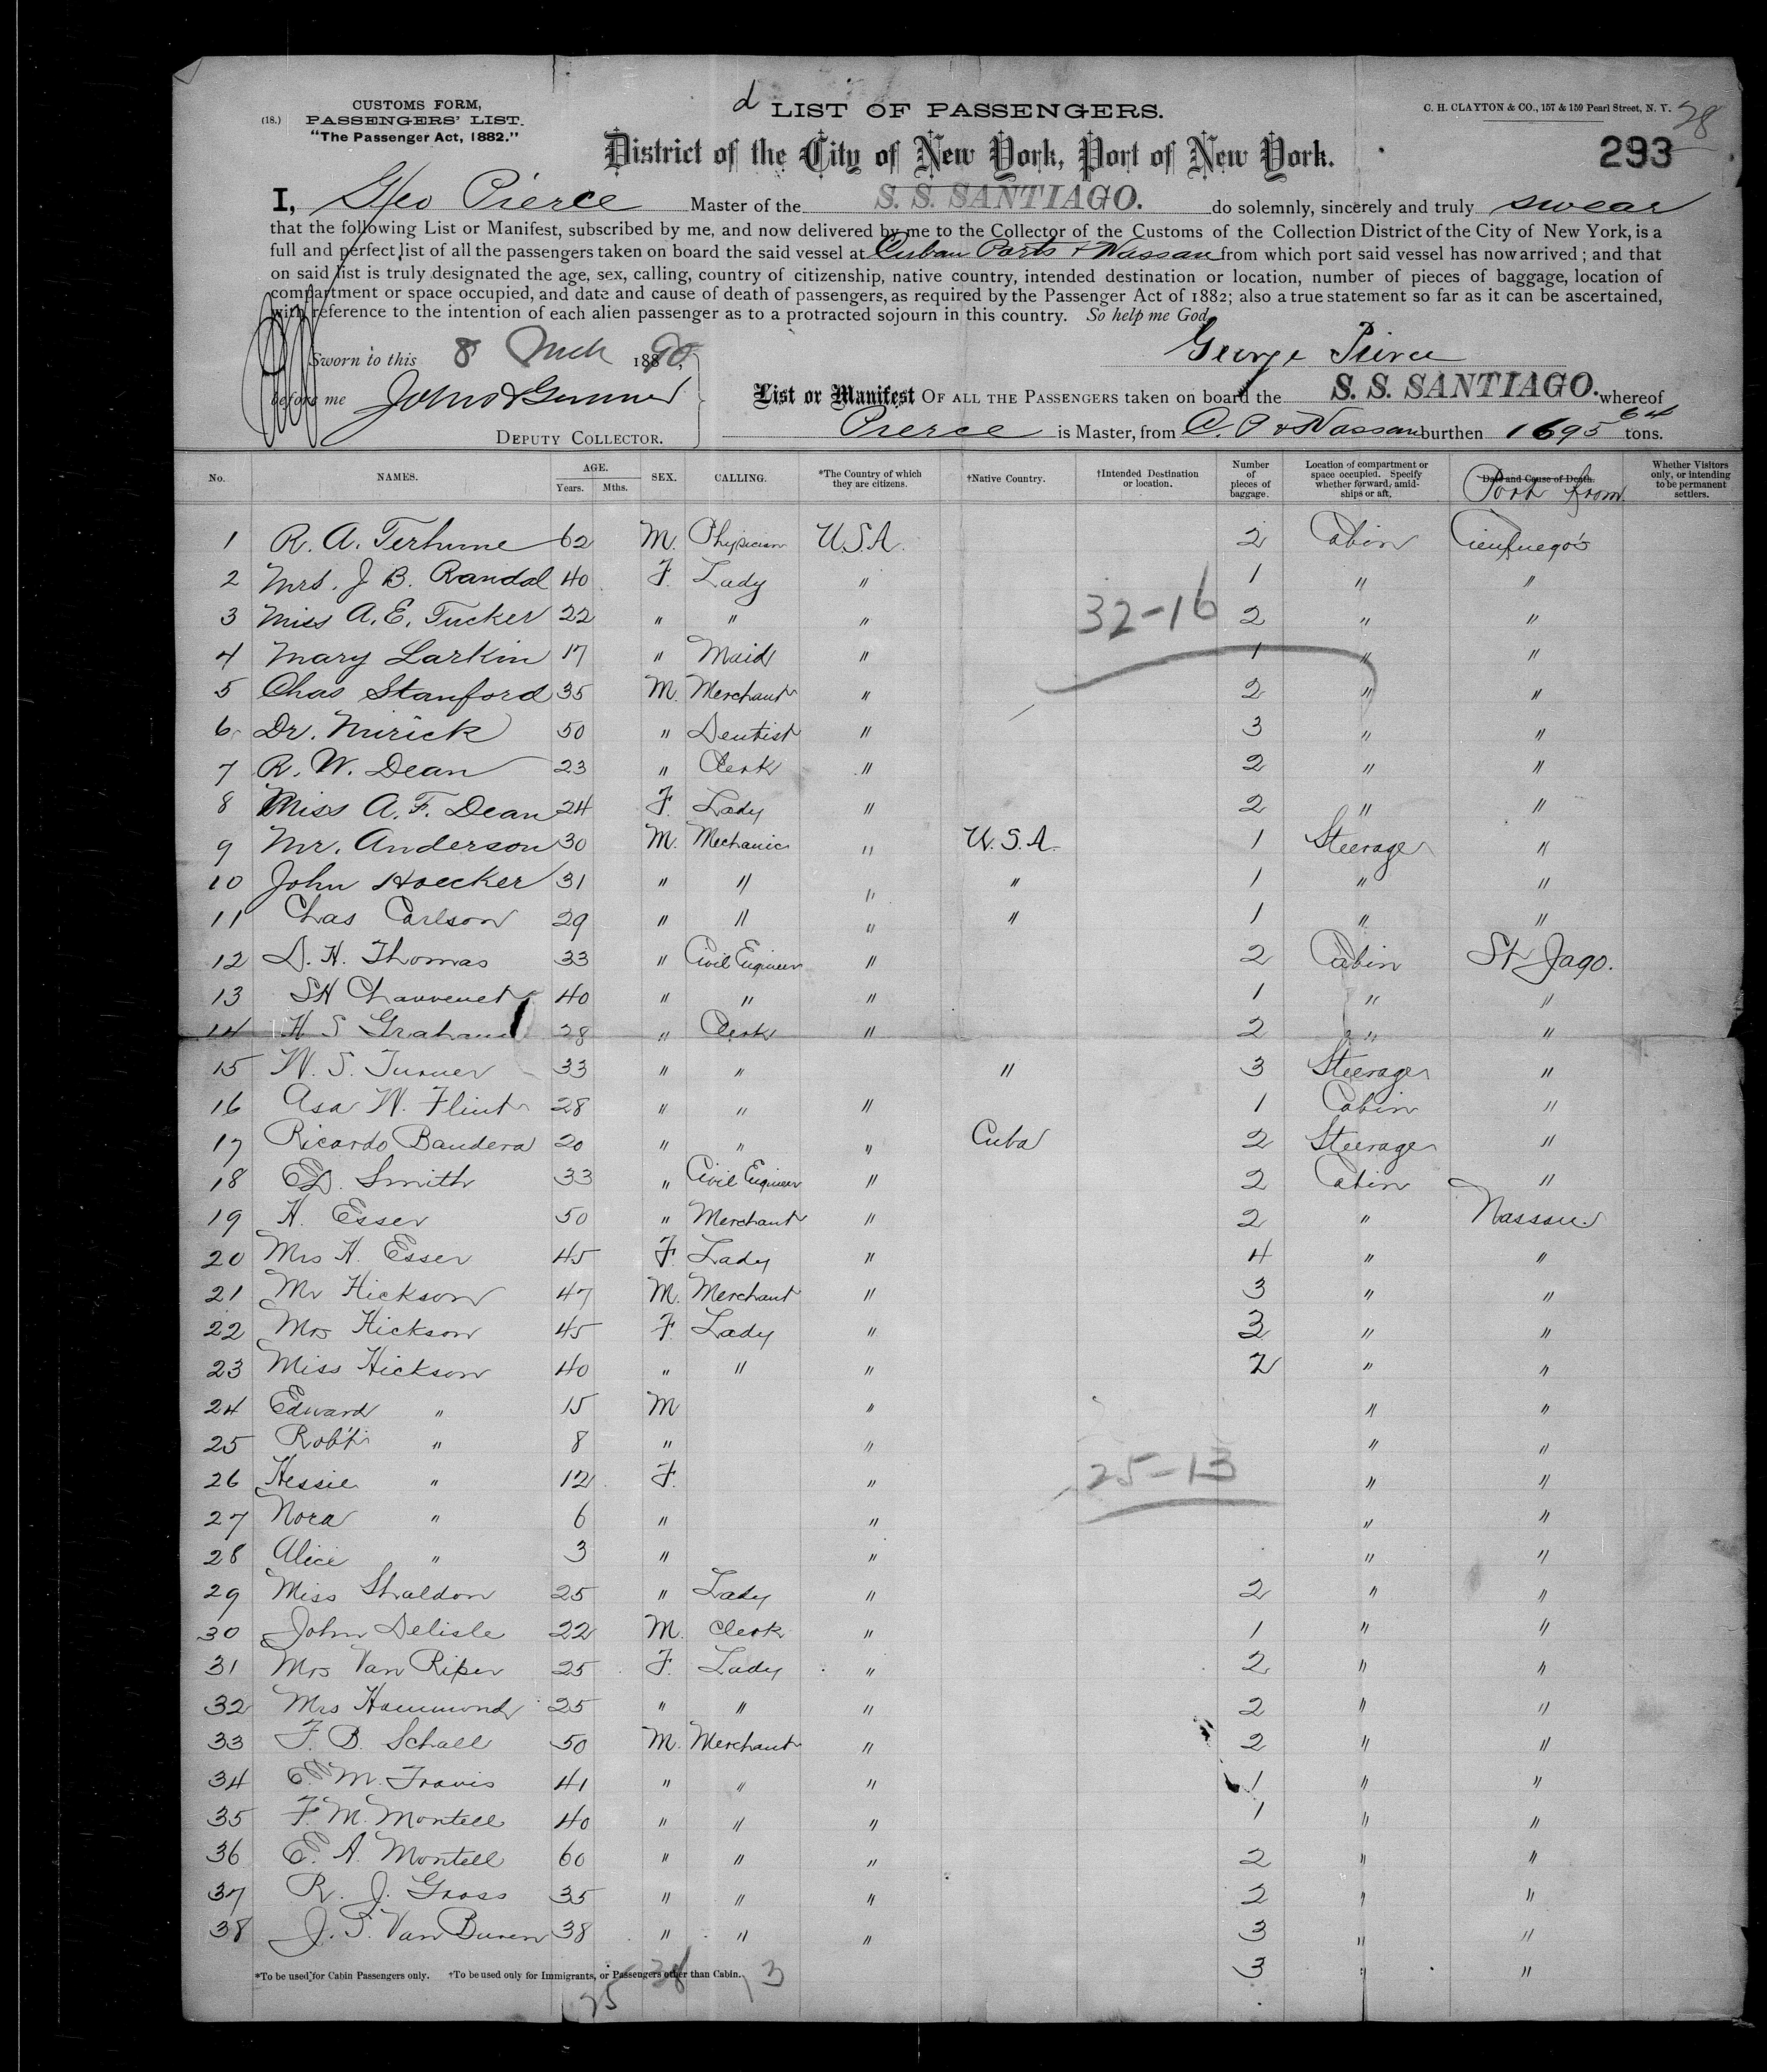 CUSTOMS FORM,
(18.) PASSENGERS' LIST.
"The Passenger Act, 1882."
d LIST OF PASSENGERS.
C. H. CLAYTON & CO., 157 & 159 Pearl Street, N. Y. 28
District of the City of New York, Port of New York.
293
I, Geo Pierce Master of the S. S. SANTIAGO. do solemnly, sincerely and truly swear
that the following List or Manifest, subscribed by me, and now delivered by me to the Collector of the Customs of the Collection District of the City of New York, is a
full and perfect list of all the passengers taken on board the said vessel at Cuban Ports & Nassau from which port said vessel has now arrived; and that
on said list is truly designated the age, sex, calling, country of citizenship, native country, intended destination or location, number of pieces of baggage, location of
compartment or space occupied, and date and cause of death of passengers, as required by the Passenger Act of 1882; also a true statement so far as it can be ascertained,
with reference to the intention of each alien passenger as to a protracted sojourn in this country. So help me God
Sworn to this 8 Mch 1890,
George Pierce
before me
DEPUTY COLLECTOR.
List or Manifest OF ALL THE PASSENGERS taken on board the S. S. SANTIAGO. whereof
Pierce is Master, from C. P & Nassau burthen 1695 64 tons.
No. NAMES. AGE. Years. Mths. SEX. CALLING. *The Country of which they are citizens. †Native Country. †Intended Destination or location. Number of pieces of baggage. Location of compartment or space occupied. Specify whether forward, amidships or aft. Date and Cause of Death. Port from Whether Visitors only, or intending to be permanent settlers.
1 R. A. Terhune 62 M. Physician U.S.A. 2 Cabin Cienfuegos
2 Mrs. J. B. Randal 40 F. Lady " 1 " "
3 Miss A. E. Tucker 22 " " " 32-16 2 " "
4 Mary Larkin 17 " Maid " 1 " "
5 Chas Stanford 35 M. Merchant " 2 " "
6 Dr. Mirick 50 " Dentist " 3 " "
7 R. W. Dean 23 " Clerk " 2 " "
8 Miss A. F. Dean 24 F. Lady " 2 " "
9 Mr. Anderson 30 M. Mechanic " U.S.A. 1 Steerage "
10 John Hoecker 31 " " " " 1 " "
11 Chas Carlson 29 " " " " 1 " "
12 D. H. Thomas 33 " Civil Engineer " 2 Cabin St Jago.
13 SH Chauvenet 40 " " " 1 " "
14 H S Graham 28 " Clerk " 2 " "
15 W. S. Turner 33 " " " 3 Steerage "
16 Asa W. Flint 28 " " " 1 Cabin "
17 Ricardo Bandera 20 " " " Cuba 2 Steerage "
18 ED. Smith 33 " Civil Engineer " 2 Cabin "
19 H. Esser 50 " Merchant " 2 " Nassau
20 Mrs H. Esser 45 F. Lady " 4 " "
21 Mr Hickson 47 M. Merchant " 3 " "
22 Mrs Hickson 45 F. Lady " 3 " "
23 Miss Hickson 40 " " " 2 " "
24 Edward " 15 M " " "
25 Rob't " 8 " " " "
26 Hessie " 12 F. " 25-13 " "
27 Nora " 6 " " " "
28 Alice " 3 " " " "
29 Miss Shaldon 25 " Lady " 2 " "
30 John Delisle 22 M. Clerk " 1 " "
31 Mrs Van Riper 25 F. Lady " 2 " "
32 Mrs Hammond 25 " " " 2 " "
33 F. B. Schall 50 M. Merchant " 2 " "
34 E. M. Travis 41 " " " 1 " "
35 F. M. Montell 40 " " " 1 " "
36 E. A. Montell 60 " " " 2 " "
37 R. J. Gross 35 " " " 2 " "
38 J. T. Van Buren 38 " " " 3 " "
3 " "
*To be used for Cabin Passengers only. †To be used only for Immigrants, or Passengers other than Cabin.
25 38 13